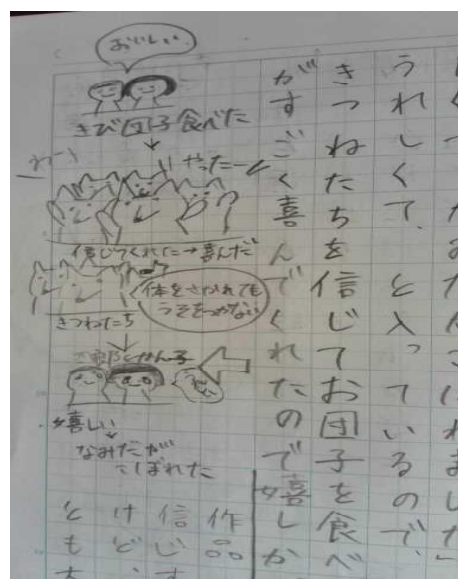 うれしくて、と入っているので、
きつねたちを信じてお団子を食べ
がすごく喜んでくれたので嬉しか
おいしい
きび団子食べた
↓
やったー
わーい
信じてくれた→喜んだ
うそをつかない
きつねたち
↓
かん子
嬉しい
↓
なみだが
こぼれた
作品
信じ
けど
とも